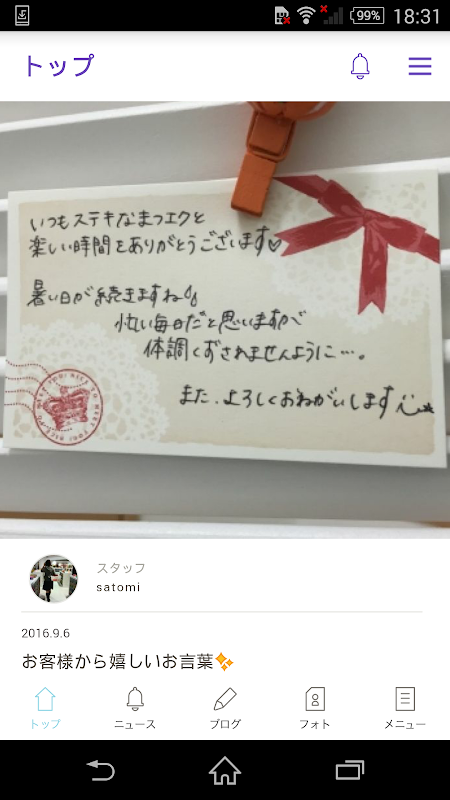 99%
18:31
トップ
いつもステキなまつエクと
楽しい時間をありがとうございます♡
暑い日が続きますね
忙しい毎日だと思いますが
体調くずされませんように…。
また、よろしくおねがいします
スタッフ
satomi
2016.9.6
お客様から嬉しいお言葉✨
トップ
ニュース
ブログ
フォト
メニュー